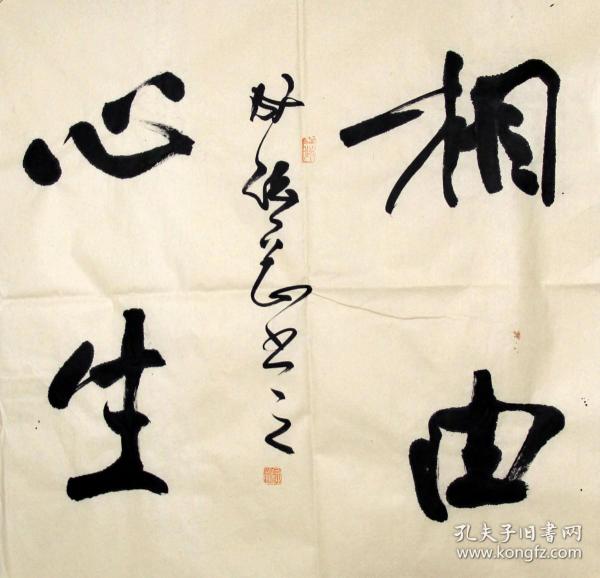 相由
心生
书之
孔夫子旧书网
www.kongfz.com